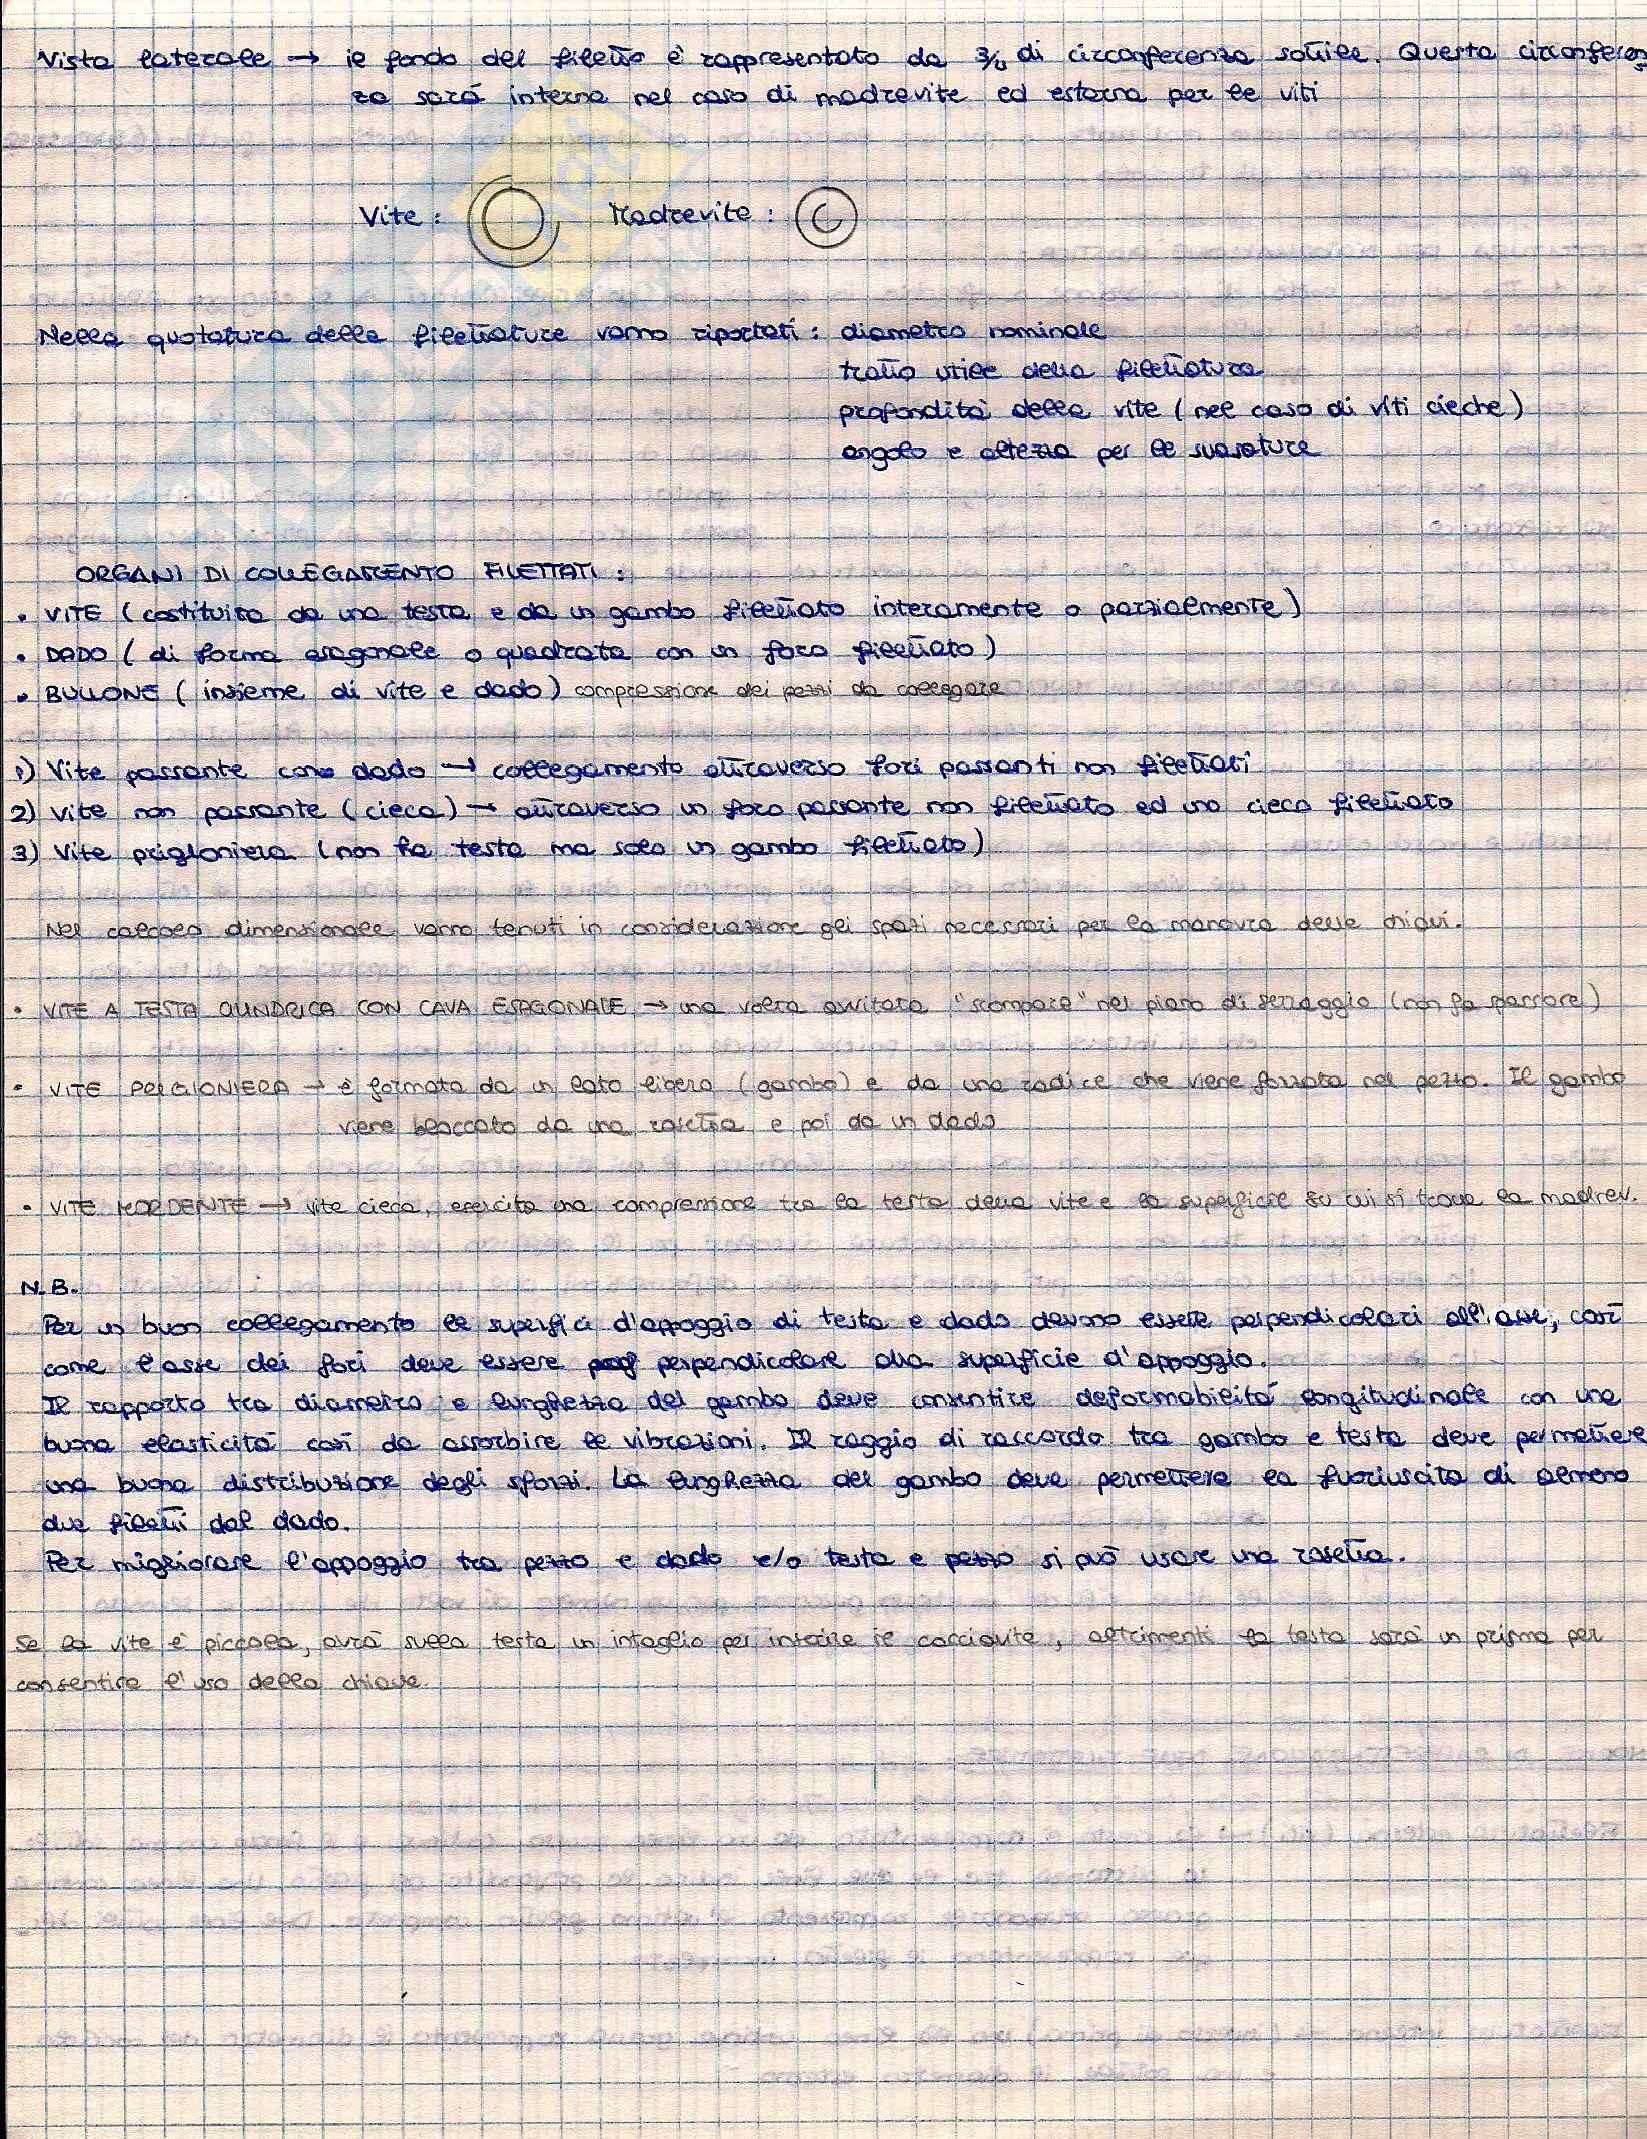 Vista laterale → il fondo del filetto è rappresentato da 3/4 di circonferenza sottile. Questa circonferen
za sarà interna nel caso di madrevite ed esterna per le viti
Vite: Madrevite:
Nella quotatura delle filettature vanno riportati: diametro nominale
tratto utile della filettatura
profondità della vite (nel caso di viti cieche)
angolo e altezza per le svasature
ORGANI DI COLLEGAMENTO FILETTATI:
• VITE (costituita da una testa e da un gambo filettato interamente o parzialmente)
• DADO (di forma esagonale o quadrata con un foro filettato)
• BULLONE (insieme di vite e dado) compressione dei pezzi da collegare
1) Vite passante con dado → collegamento attraverso fori passanti non filettati
2) Vite non passante (cieca) → attraverso un foro passante non filettato ed uno cieco filettato
3) Vite prigioniera (non ha testa ma solo un gambo filettato)
Nel calcolo dimensionale vanno tenuti in considerazione gli spazi necessari per la manovra delle chiavi.
• VITE A TESTA CILINDRICA CON CAVA ESAGONALE → una volta avvitata "scompare" nel piano di serraggio (non fa spessore)
• VITE PRIGIONIERA → è formata da un lato libero (gambo) e da una radice che viene forzata nel pezzo. Il gambo
viene bloccato da una rosetta e poi da un dado
• VITE MORDENTE → vite cieca, esercita una compressione tra la testa della vite e la superficie su cui si trova la madrev.
N.B.
Per un buon collegamento le superfici d'appoggio di testa e dado devono essere perpendicolari all'asse, così
come l'asse dei fori deve essere perpendicolare alla superficie d'appoggio.
Il rapporto tra diametro e lunghezza del gambo deve consentire deformabilità longitudinale con una
buona elasticità così da assorbire le vibrazioni. Il raggio di raccordo tra gambo e testa deve permettere
una buona distribuzione degli sforzi. La lunghezza del gambo deve permettere la fuoriuscita di almeno
due filetti dal dado.
Per migliorare l'appoggio tra pezzo e dado e/o testa e pezzo si può usare una rosetta.
Se la vite è piccola, avrà sulla testa un intaglio per inserire il cacciavite, altrimenti la testa sarà un prisma per
consentire l'uso della chiave.